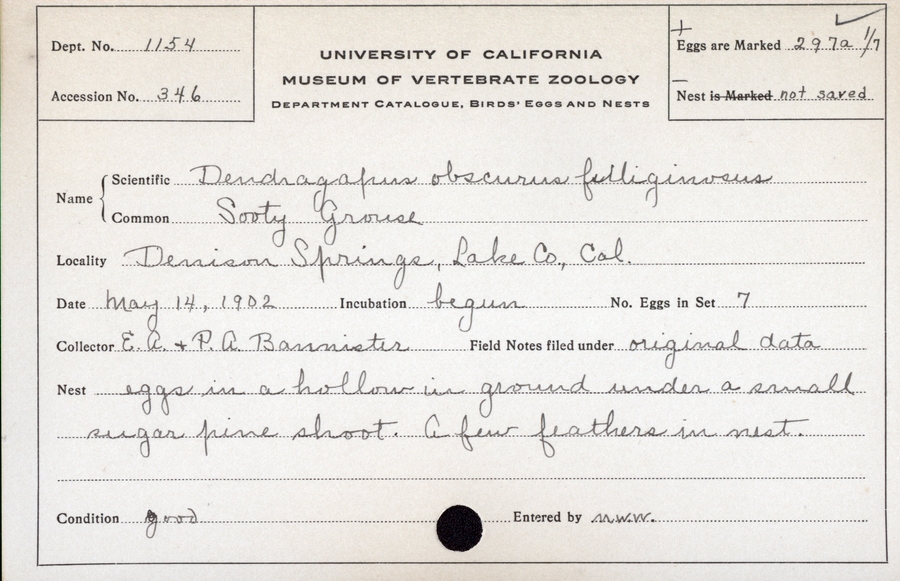 Dept. No. 1154
Accession No. 346
UNIVERSITY OF CALIFORNIA
MUSEUM OF VERTEBRATE ZOOLOGY
DEPARTMENT CATALOGUE, BIRDS' EGGS AND NESTS
Eggs are Marked 297a 1/7
Nest is Marked not saved
Name
Scientific Dendragapus obscurus fulliginosus
Common Sooty Grouse
Locality Denison Springs, Lake Co., Cal.
Date May 14, 1902 Incubation begun No. Eggs in Set 7
Collector E. A. + P. A. Bannister Field Notes filed under original data
Nest eggs in a hollow in ground under a small
sugar pine shoot. A few feathers in nest.
Condition good Entered by n.w.w.